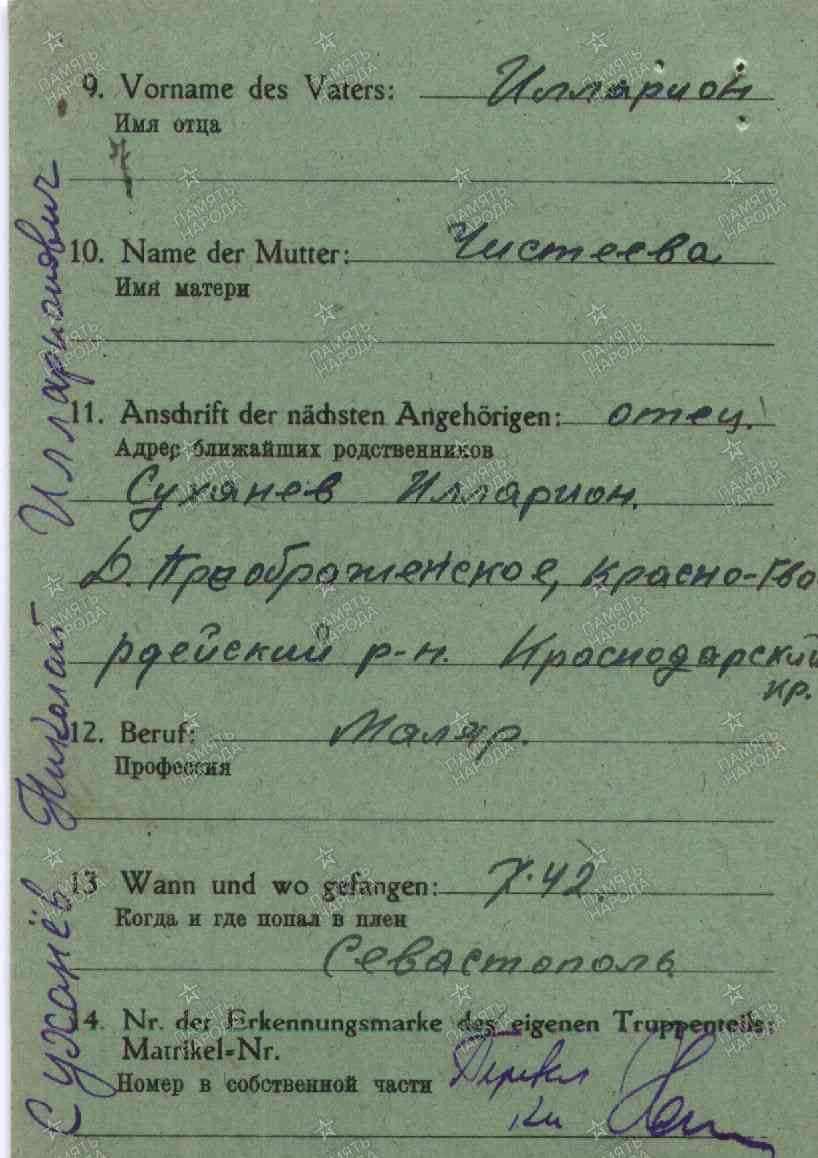 9. Vorname des Vaters: Илларион
Имя отца
10. Name der Mutter: Чистеева
Имя матери
11. Anschrift der nächsten Angehörigen: отец.
Адрес ближайших родственников
Суханев Илларион.
Д. Преображенское, Красно-Гва
рдейский р-н. Краснодарский
кр.
12. Beruf: Маляр.
Профессия
13 Wann und wo gefangen: 7.42.
Когда и где попал в плен
Севастополь
14. Nr. der Erkennungsmarke des eigenen Truppenteils:
Matrikel-Nr.
Номер в собственной части
Перевел
Суханёв Николай Илларионович
ПАМЯТЬ
НАРОДА